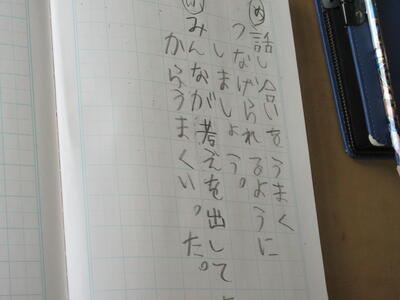 め 話し合いをうまく
つなげられるように
しましょう。
みんなが考えを出して
からうまくいった。